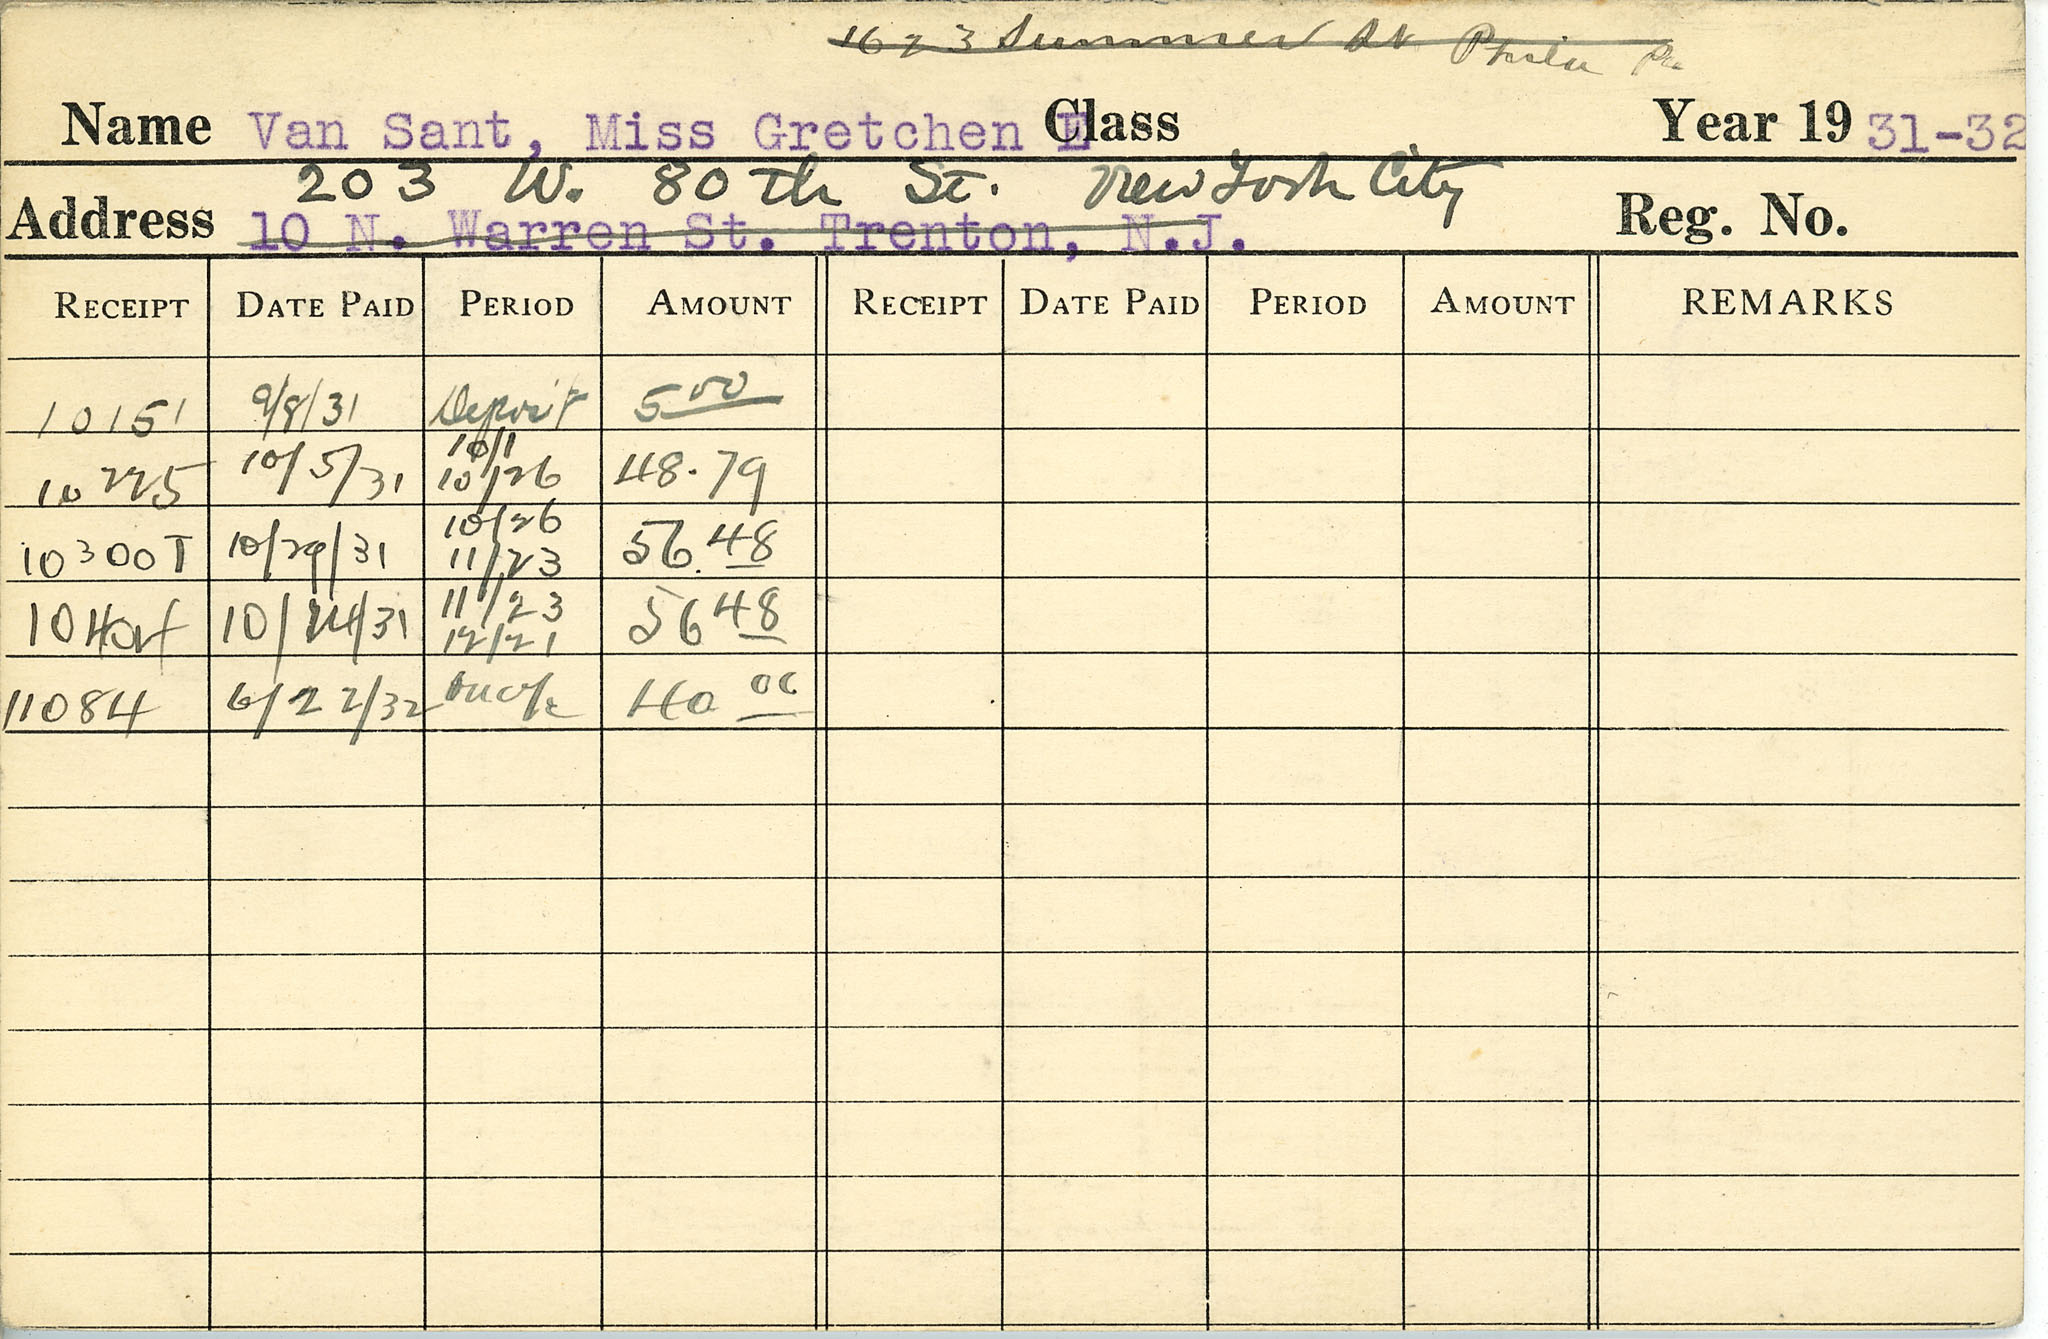 Summer St Phila Pa
Name Van Sant, Miss Gretchen E Class Year 19 31-32
203 W. 80th St. New York City
Address 10 N. Warren St. Trenton, N.J. Reg. No.
RECEIPT DATE PAID PERIOD AMOUNT RECEIPT DATE PAID PERIOD AMOUNT REMARKS
10151 9/8/31 Deposit 5 00
10/1
10225 10/5/31 10/26 48.79
10/26
10300T 10/29/31 11/23 56.48
11/23
10/24/31 12/21 56 48
11084 6/22/32 on a/c 40 00